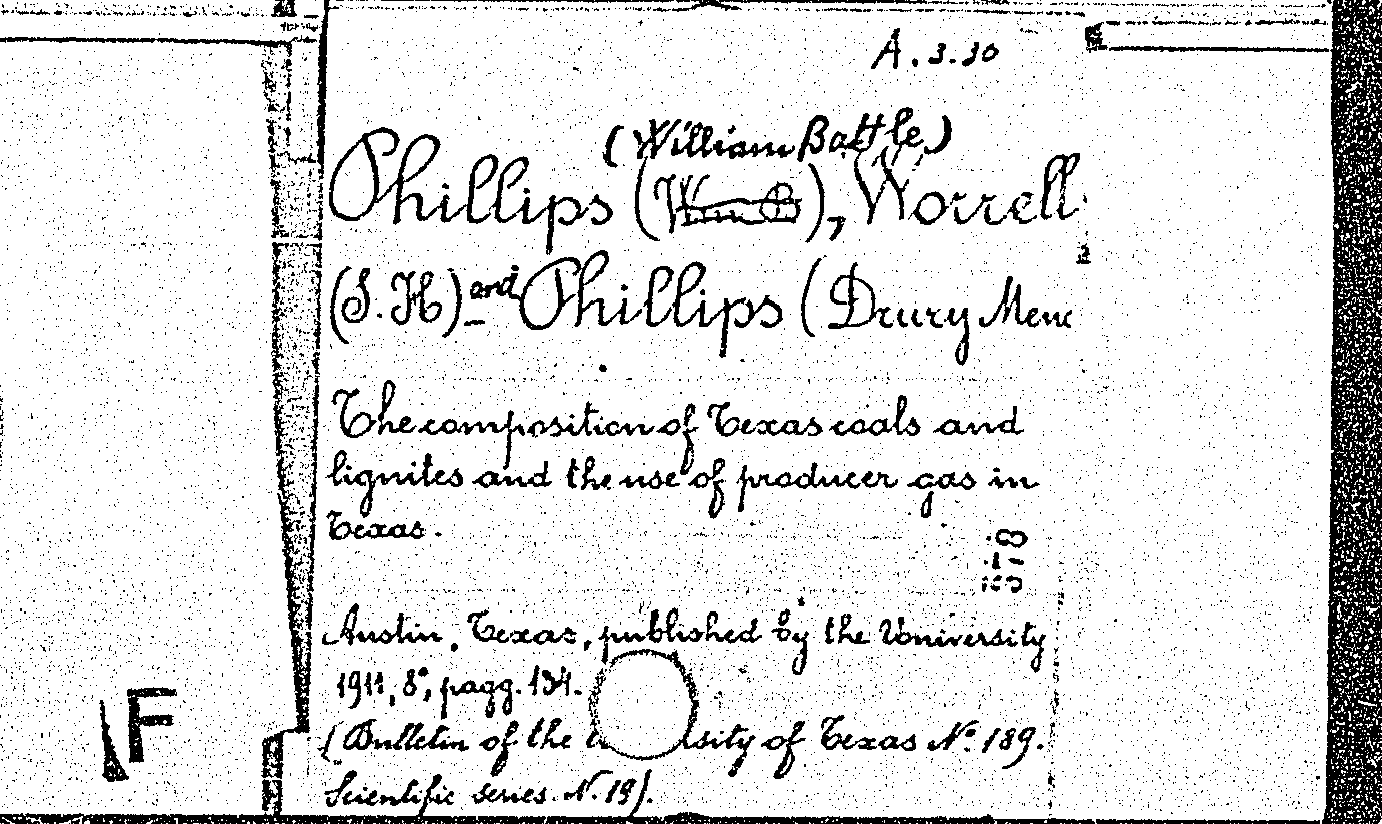 A.3.30
(William Battle)
Phillips (Wm B), Worrell
(S. H) and Phillips (Drury Menc
The composition of Texas coals and
lignites and the use of producer gas in
Texas.
Austin, Texas, published by the University
1911, 8°, pagg. 134.
(Bulletin of the sity of Texas N° 189.
Scientific series N. 19).
F